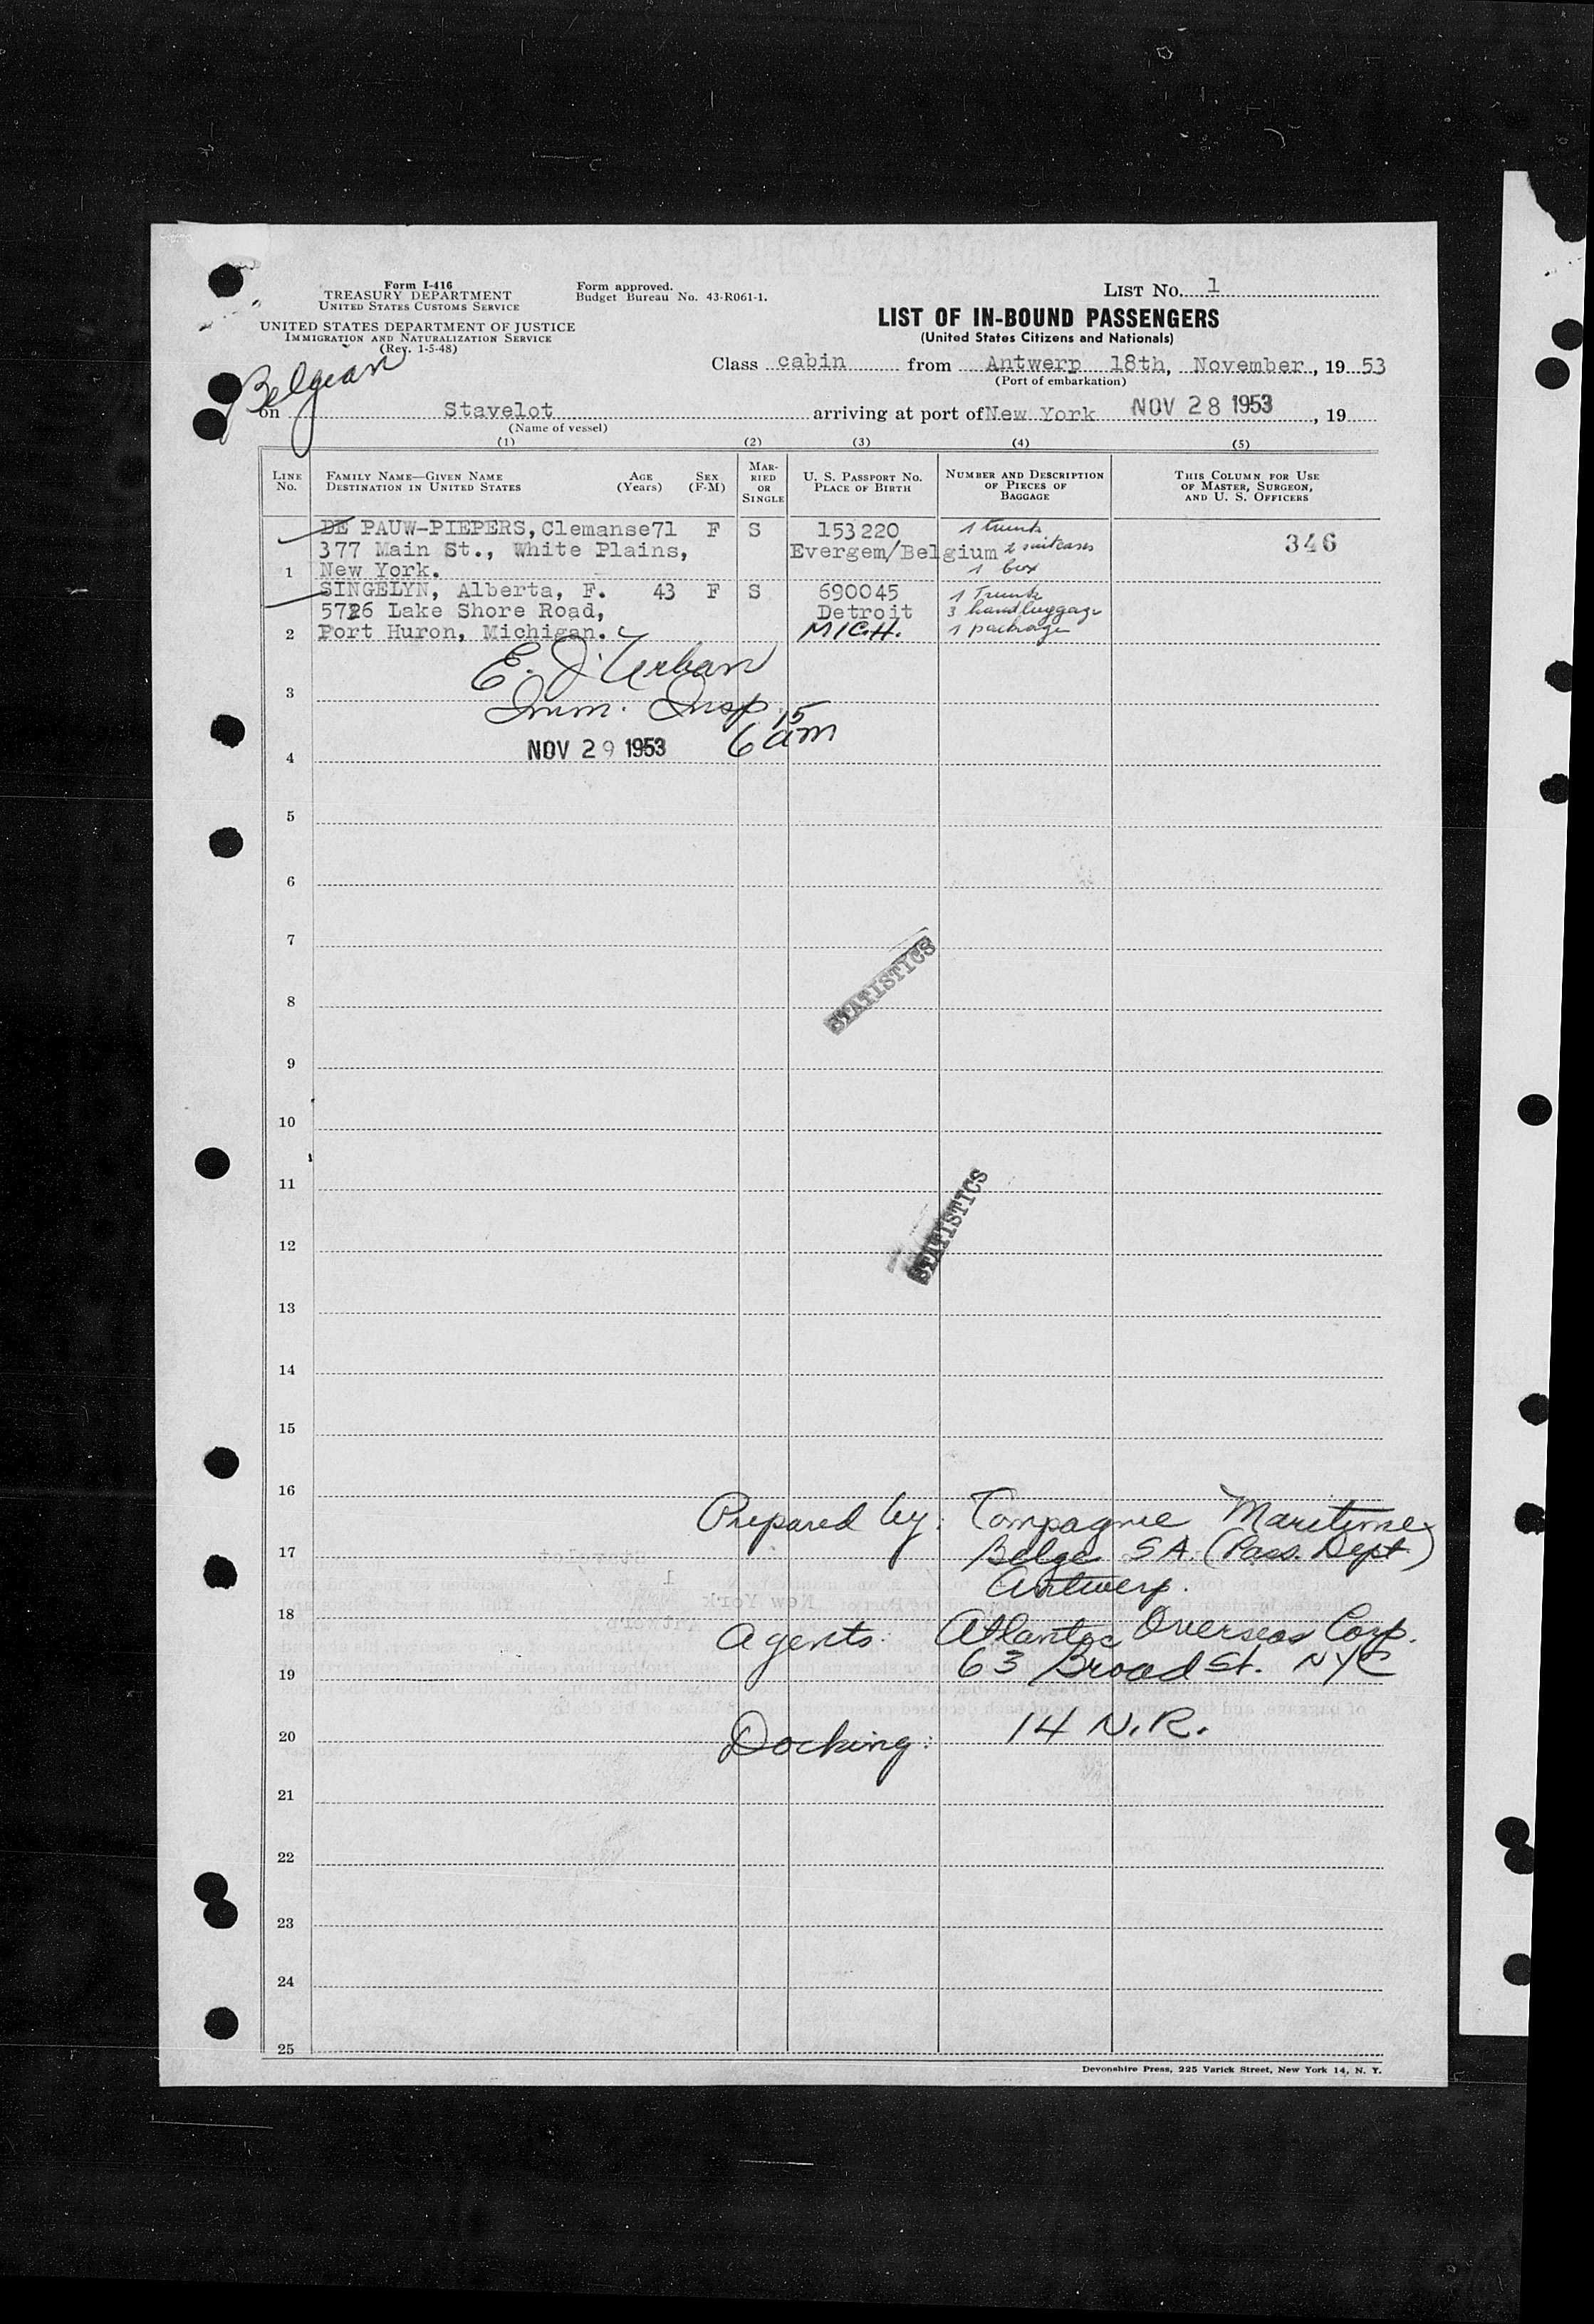 Form I-416
TREASURY DEPARTMENT
UNITED STATES CUSTOMS SERVICE
UNITED STATES DEPARTMENT OF JUSTICE
IMMIGRATION AND NATURALIZATION SERVICE
(Rev. 1-5-48)
Form approved.
Budget Bureau No. 43-R061-1.
LIST NO. 1
LIST OF IN-BOUND PASSENGERS
(United States Citizens and Nationals)
Class cabin from Antwerp 18th, November, 19 53
(Port of embarkation)
Belgian
on Stavelot arriving at port of New York NOV 28 1953, 19
(Name of vessel)
(1) (2) (3) (4) (5)
LINE NO.
FAMILY NAME—GIVEN NAME
DESTINATION IN UNITED STATES
AGE (Years)
SEX (F-M)
MARRIED OR SINGLE
U. S. PASSPORT NO.
PLACE OF BIRTH
NUMBER AND DESCRIPTION OF PIECES OF BAGGAGE
THIS COLUMN FOR USE OF MASTER, SURGEON, AND U. S. OFFICERS
DE PAUW-PIEPERS, Clemanse 71 F S 153220 1 trunk
377 Main St., White Plains, Evergem/Belgium 2 suitcases 346
1 New York. 1 box
SINGELYN, Alberta, F. 43 F S 690045 1 Trunk
5726 Lake Shore Road, Detroit 3 handluggage
2 Port Huron, Michigan. MICH. 1 package
E. J. Urban
3
Imm. Insp.
NOV 29 1953 6 15 am
4
5
6
7
STATISTICS
8
9
10
11
STATISTICS
12
13
14
15
16
Prepared by: Compagnie Maritime
17
Belge S.A. (Pass. Dept)
Antwerp.
18
Agents: Atlantic Overseas Corp.
19
63 Broad St. NYC
20
Docking: 14 N.R.
21
22
23
24
25
Devonshire Press, 225 Varick Street, New York 14, N. Y.